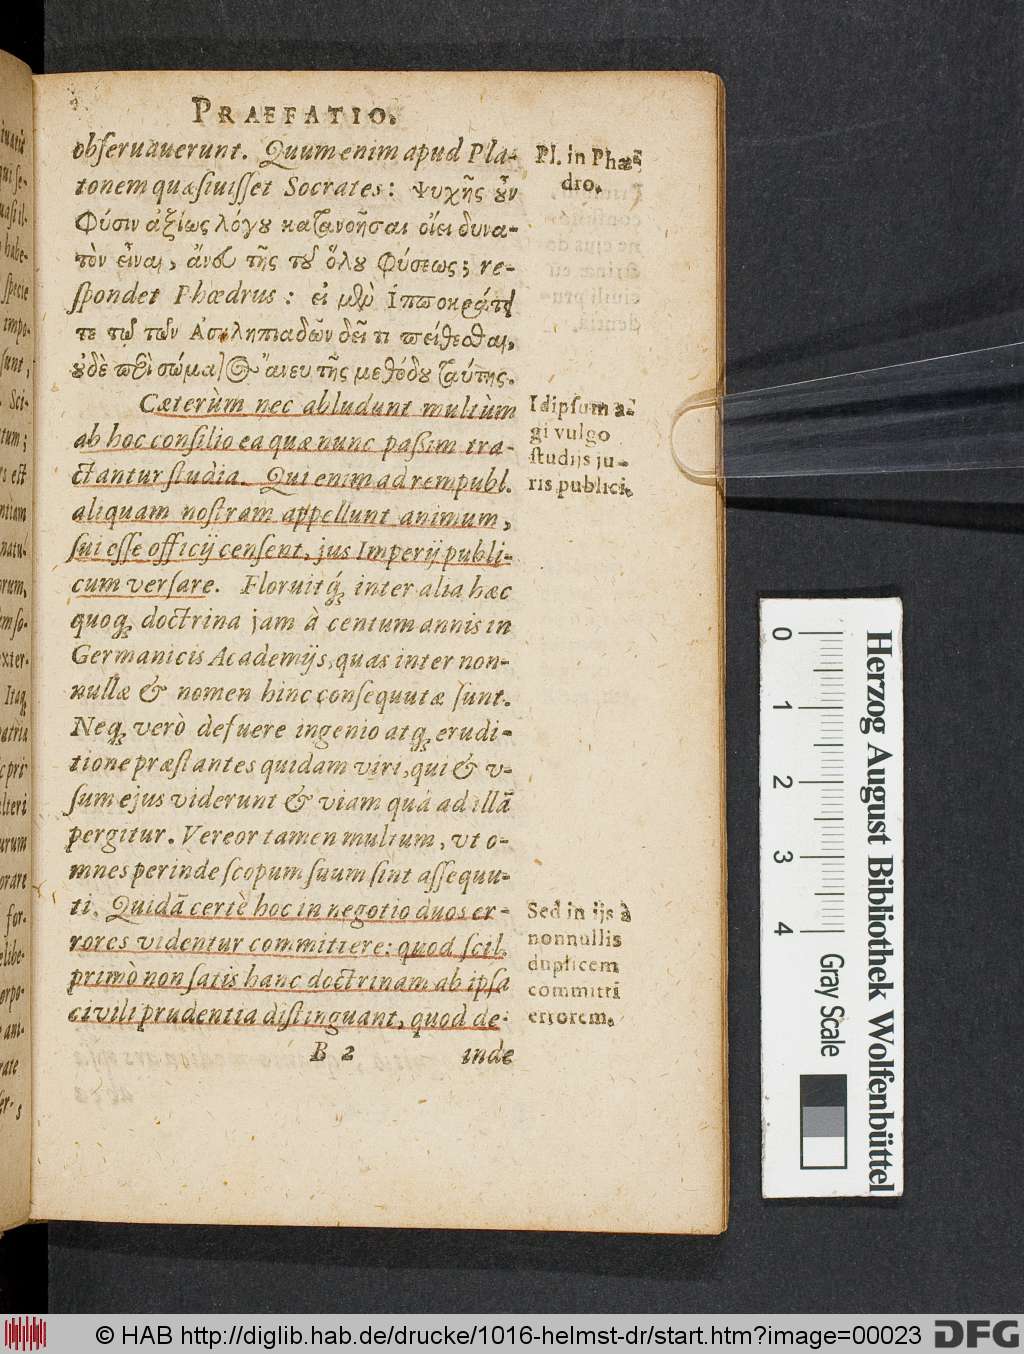 PRAEFATIO.
obſeruauerunt. Quum enim apud Pla-
tonem quæſiuiſſet Socrates: Ψυχῆς ȣ̓ν
Φύσιν ἀξίως λόγȣ καταν­οῆσαι οἴει δυνα-
τὸν εἶναι, ἄνευ τῆς τȣ͂ ὅλȣ Φύσεως; re-
ſpondet Phædrus: εἰ μὲν Ἱπποκράτει
τε τῷ τῶν Ἀσκληπιαδῶν δεῖ τι πείθεσθαι,
ȣ̓δὲ περὶ σώματος ἄνευ τῆς μεθόδȣ ταύτης.
Cæterùm nec abludunt multùm
ab hoc conſilio ea quæ nunc paßim tra-
ctantur ſtudia. Qui enim ad rempubl.
aliquam noſtram appellunt animum,
ſui eſſe officij cenſent, jus Imperij publi-
cum verſare. Floruitq́; inter alia hæc
quoq; doctrina jam à centum annis in
Germanicis Academijs, quas inter non-
nullæ & nomen hinc conſequutæ ſunt.
Neq; verò defuere ingenio atq; erudi-
tione præſtantes quidam viri, qui & v-
ſum ejus viderunt & viam quâ ad illã
pergitur. Vereor tamen multum, vt o-
mnes perinde ſcopum ſuum ſint aſſequu-
ti. Quidã certè hoc in negotio duos er-
rores videntur committere: quod ſcil.
primò non ſatis hanc doctrinam ab ipſa
civili prudentia diſtinguant, quod de-
B 2 inde
Pl. in Phæ-
dro.
Idipſum a-
gi vulgo
ſtudijs ju-
ris publici.
Sed in ijs à
nonnullis
duplicem
committi
errorem.
0 1 2 3 4
Gray Scale
Herzog August Bibliothek Wolfenbüttel
© HAB http://diglib.hab.de/drucke/1016-helmst-dr/start.htm?image=00023
DFG